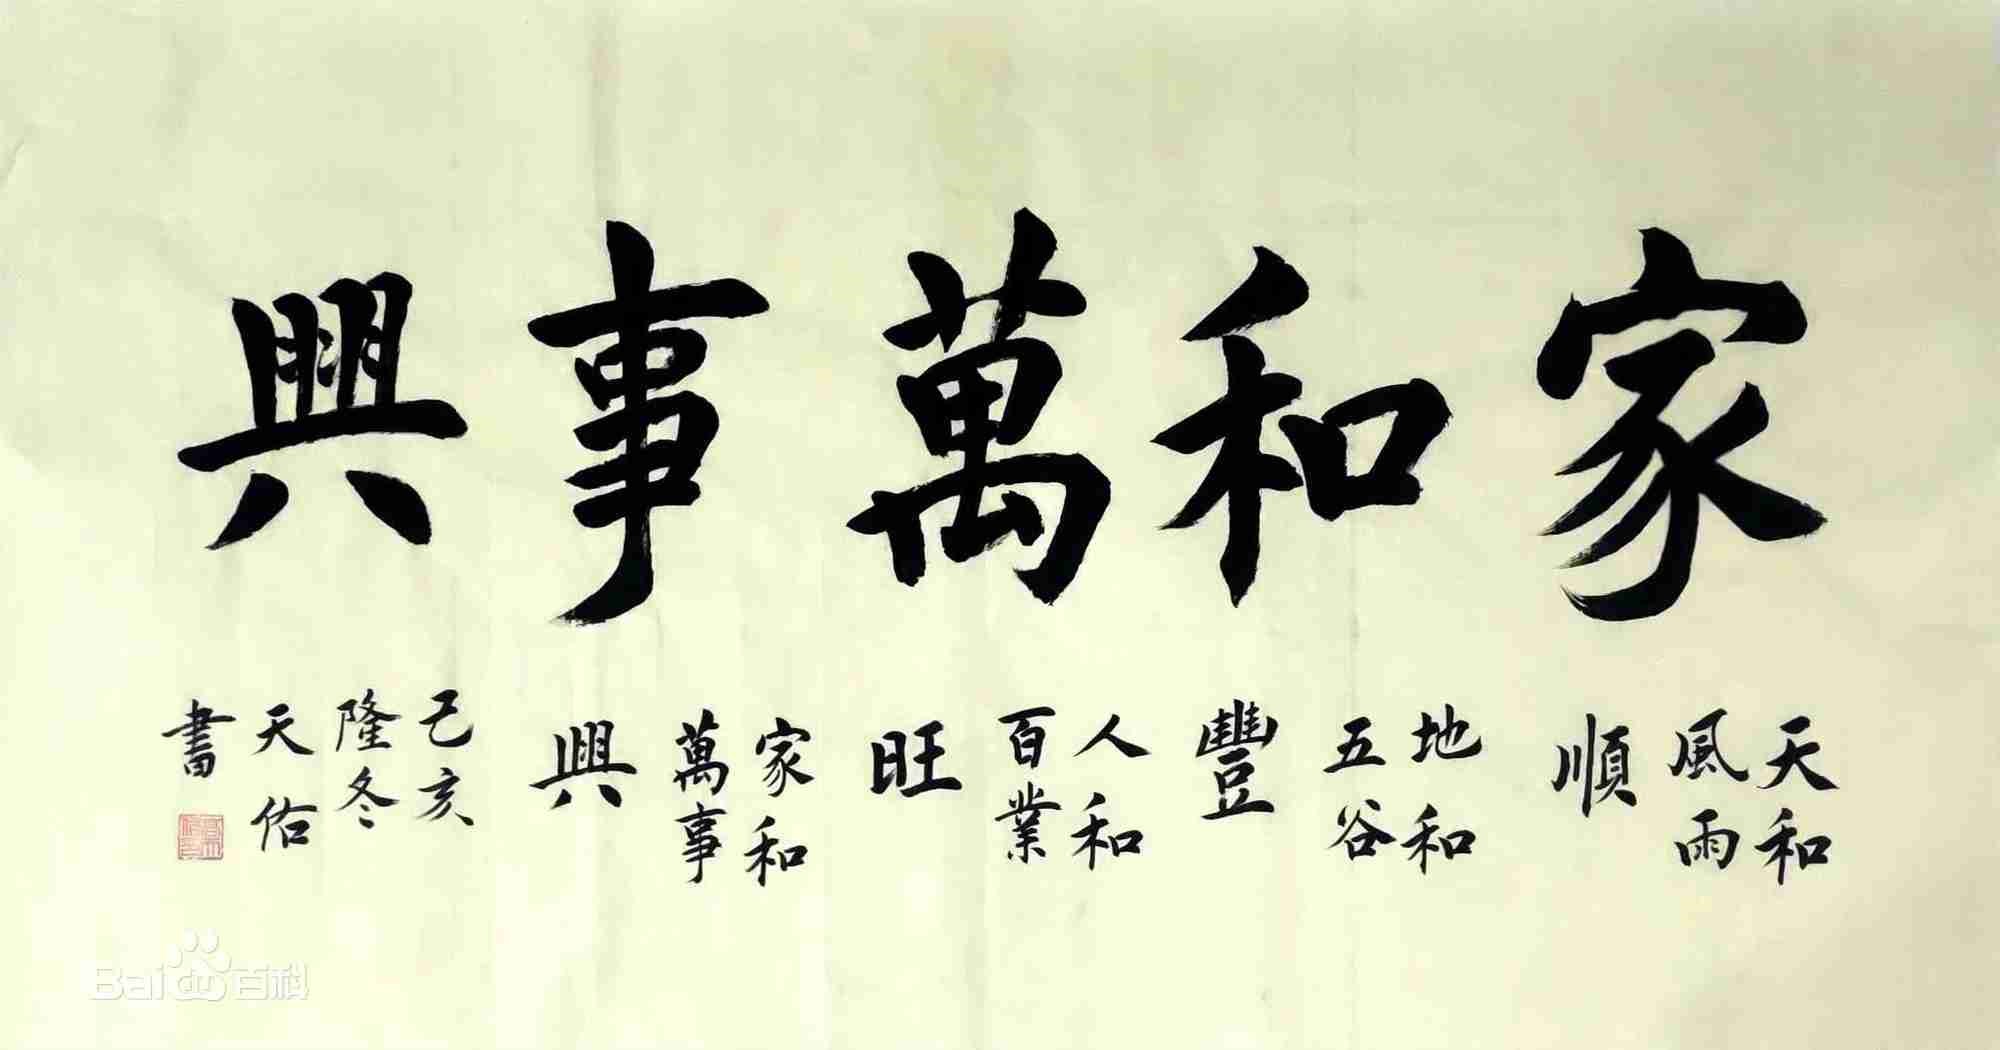 家和萬事興
天和
風雨
順
地和
五谷
豐
人和
百業
旺
家和
萬事
興
己亥
隆冬
天佑
書
Bai百科